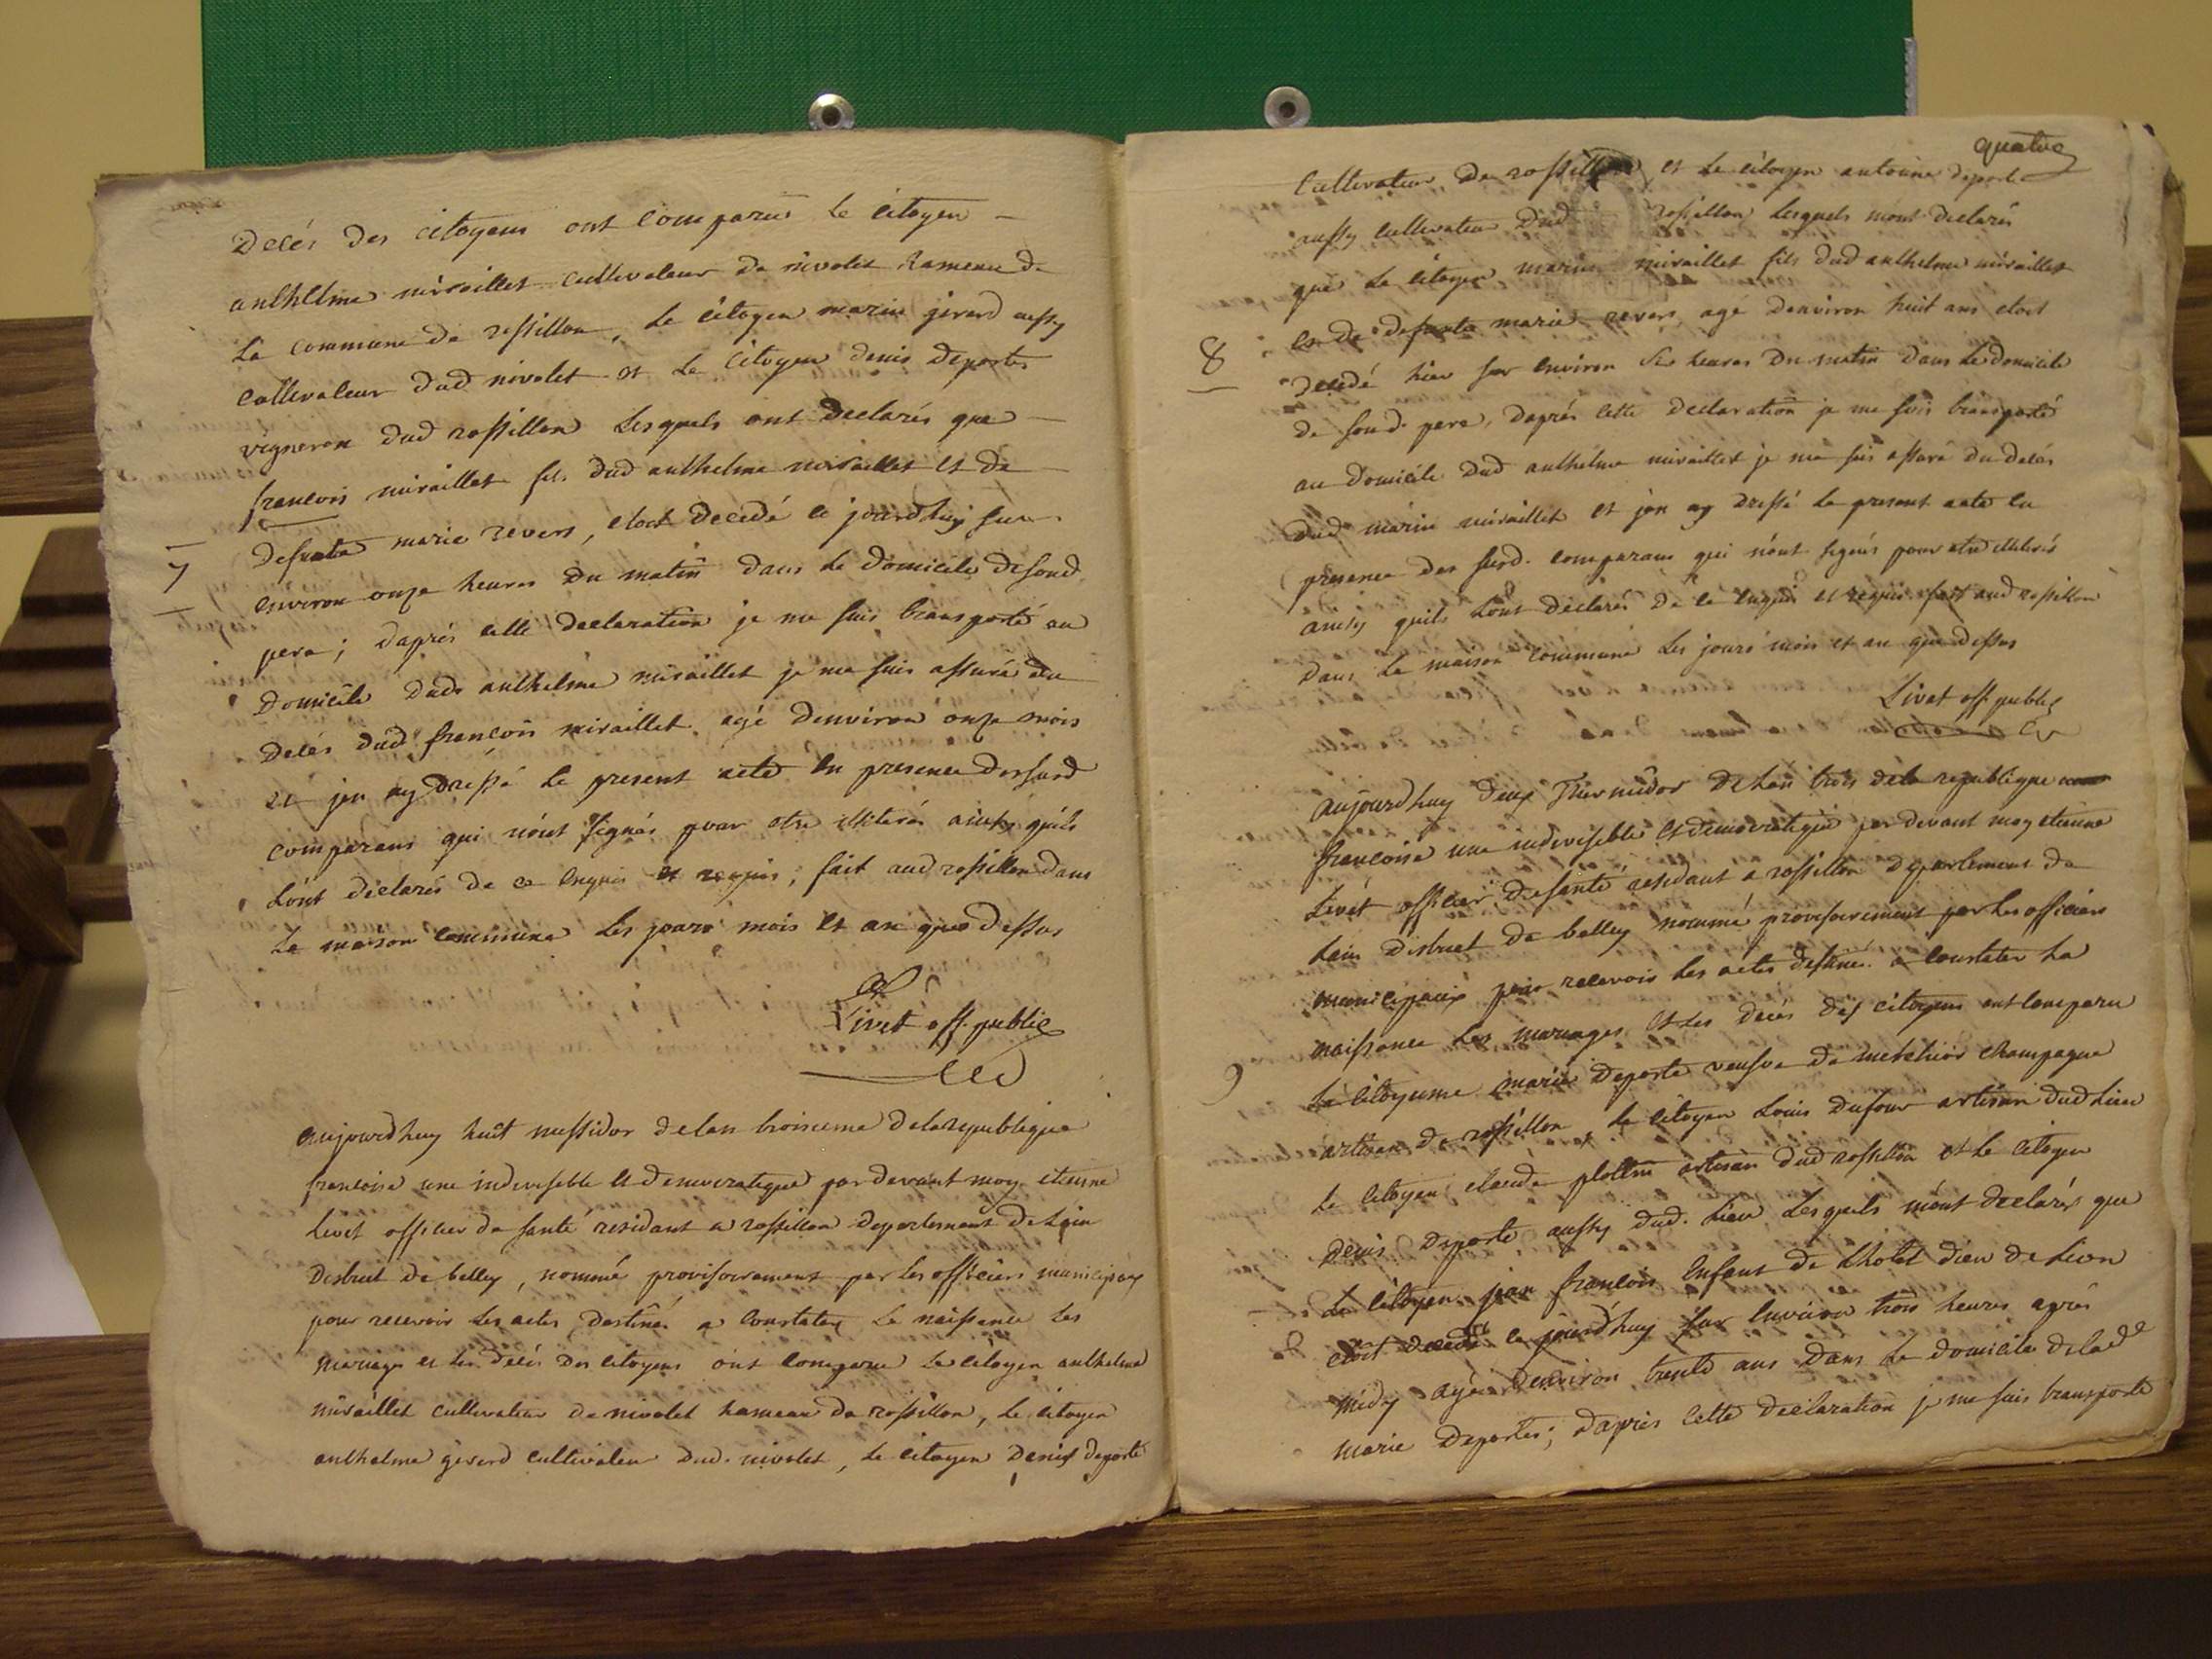 Decés des citoyens ont comparus le citoyen
anthelme miraillet cultivateur de nivolet hameau de
la commune de rossillon, le citoyen marin girerd aussy
cultivateur dud nivolet et le citoyen denis deporte
vigneron dud rossillon lesquels ont declarés que
françois miraillet fils dud anthelme miraillet et de
7
defunte marie revers, etoit decedé ce jourdhuy sur
environ onze heures du matin dans le domicile desond
pere; daprés cette declaration je me suis transporté au
domicile dud anthelme miraillet je me suis assuré du
decés dud françois miraillet agé denviron onze mois
et jen ay dressé le present acte en presence des susd
comparans qui n'ont signés pour etre illiterés ainsy qu'ils
l'ont declarés de ce enquis et requis; fait aud rossillon dans
la maison commune les jours mois et an que dessus
Livet off. public
aujourdhuy huit messidor de lan troisieme de la republique
françoise une indivisible et democratique par devant moy etienne
livet officier de santé residant a rossillon departement de Lain
district de belley, nommé provisoirement par les officiers municipaux
pour recevoir les actes destinés a constater la naissance les
mariages et les decés des citoyens ont comparu le citoyen anthelme
miraillet cultivateur de nivolet hameau de rossillon, le citoyen
anthelme girerd cultivateur dud. nivolet, le citoyen denis deporte
quatre
cultivateur de rossillon, et le citoyen antoine deporte
aussy cultivateur dud rossillon lesquels m'ont declarés
que le citoyen marin miraillet fils dud anthelme miraillet
et de defunte marie revers, agé denviron huit ans etoit
8
decedé hier sur environ six heures du matin dans le domicile
de sond. pere, daprés cette declaration je me suis transporté
au domicile dud anthelme miraillet je me suis assuré du decés
dud marin miraillet et jen ay dressé le present acte en
presence des susd. comparans qui n'ont signés pour etre illiterés
ainsy quils l'ont declarés de ce enquis et requis fait aud rossillon
dans la maison commune les jours mois et an que dessus
Livet off. public
aujourdhuy deux Thermidor de lan trois de la republique
françoise une indivisible et democratique par devant moy etienne
Livet officier de santé residant a rossillon departement de
Lain district de belley nommé provisoirement par les officiers
municipaux pour recevoir les actes destinés a constater la
naissance les mariages et les decés des citoyens ont comparu
9
la citoyenne marie deporte veufve de melchior champagne
artisan de rossillon, le citoyen Louis dufour artisan dud lieu
le citoyen claude plottin artisan dud rossillon et le citoyen
denis deporte aussy dud. lieu lesquels m'ont declarés que
le citoyen jean françois enfant de l'hotel dieu de Lion
etoit decedé ce jourdhuy sur environ trois heures aprés
midy agé denviron trente ans dans le domicile de lade
marie deporte; daprés cette declaration je me suis transporté